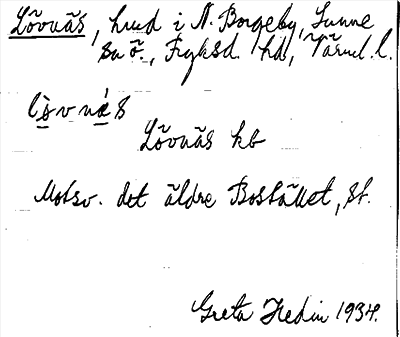 Lövnäs, hmd i N. Borgeby, Sunne
sn ö., Fryksd. hd, Värml. l.
lö̀vnás
Lövnäs kb
Motsv. det äldre Bostället, st.
Greta Hedin 1934.